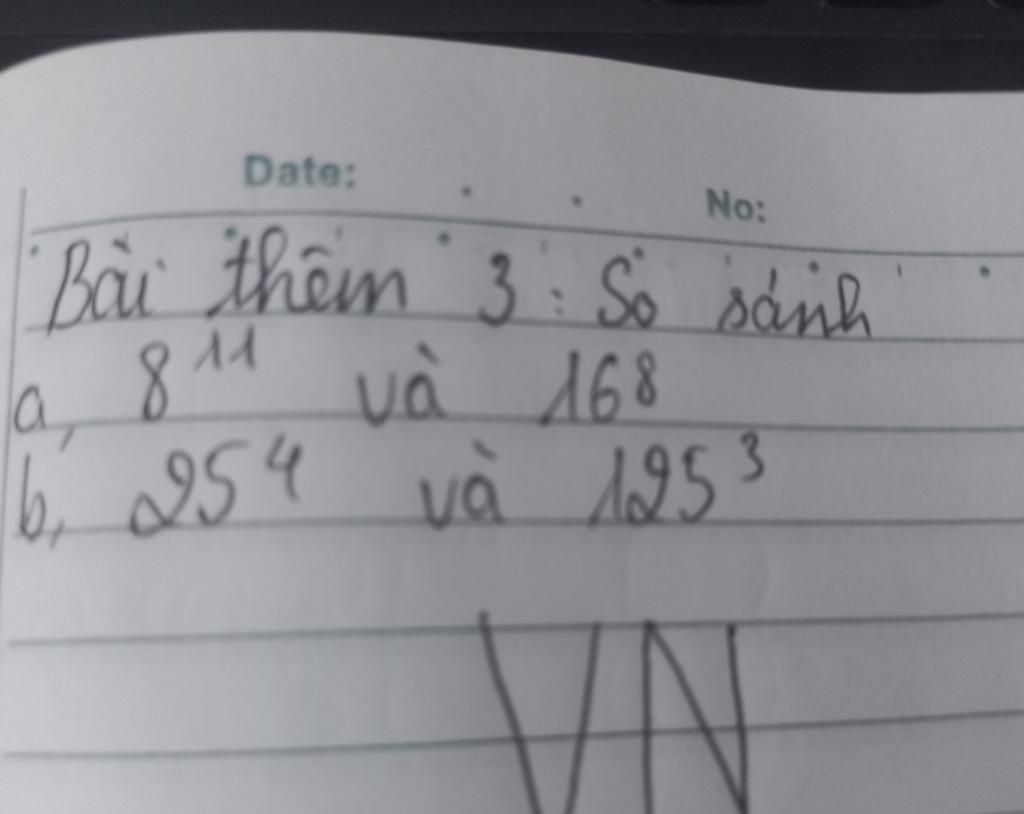 Date: No:
Bài thêm 3: So sánh
a, 8¹¹ và 16⁸
b, 25⁴ và 125³
VN